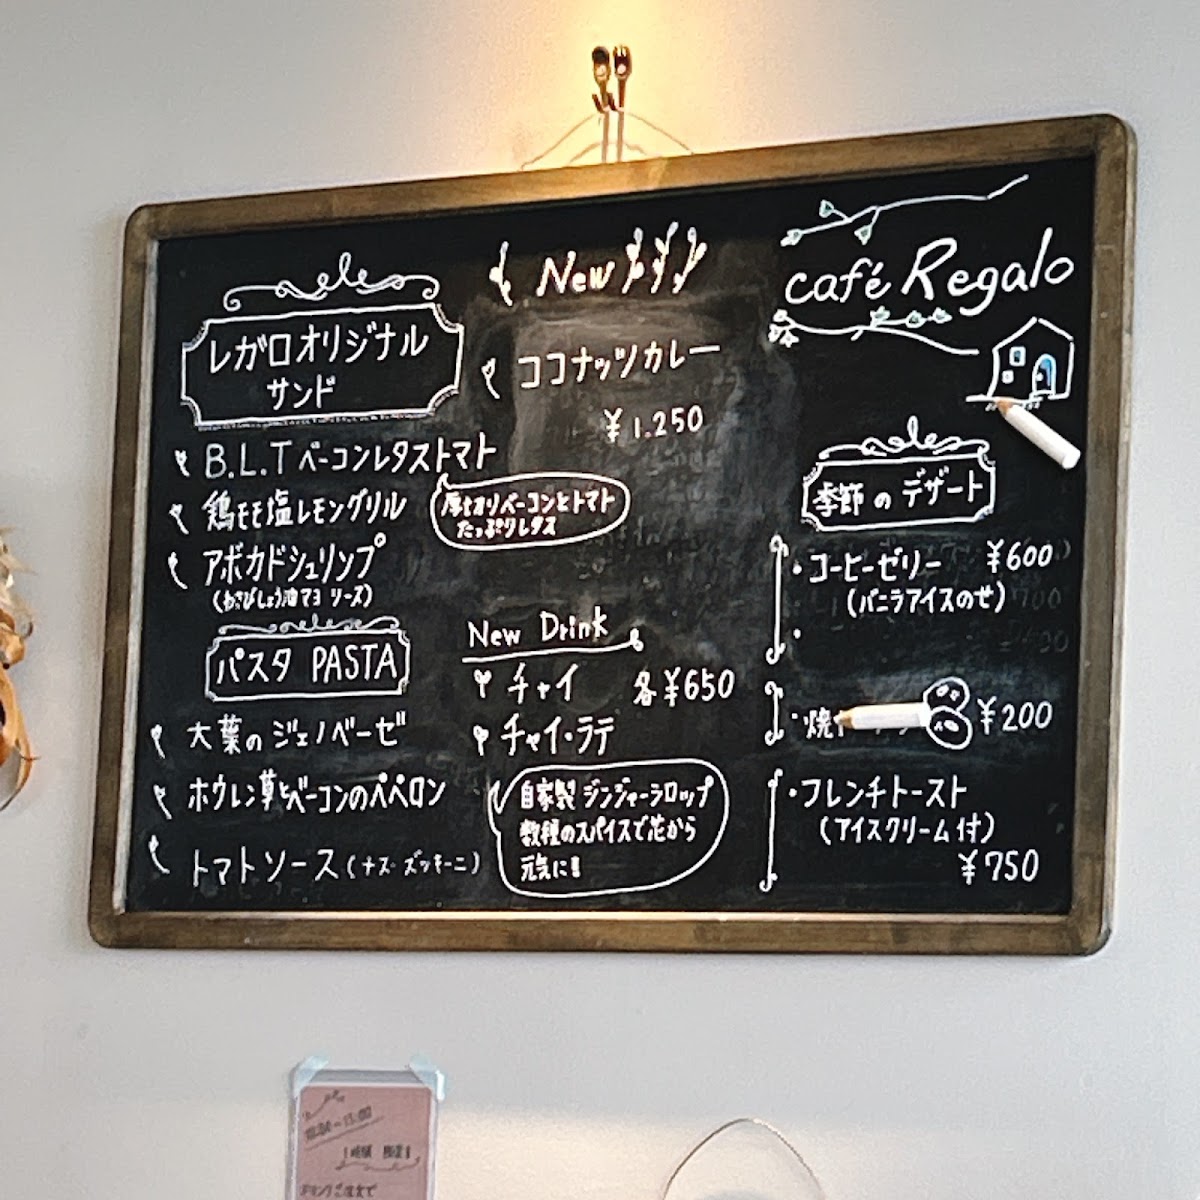 café Regalo
レガロオリジナル
サンド
B.L.T ベーコンレタストマト
厚切りベーコンとトマト
たっぷりレタス
鶏もも塩レモングリル
アボカドシュリンプ
(わさびしょう油マヨ ソース)
パスタ PASTA
大葉のジェノベーゼ
ホウレン草とベーコンのペペロン
トマトソース (ナス・ズッキーニ)
New
ココナッツカレー
¥1.250
New Drink
チャイ 各¥650
チャイ・ラテ
自家製 ジンジャーシロップ
数種のスパイスで花から
元気に!
季節のデザート
・コーヒーゼリー ¥600
(バニラアイスのせ)
・
・焼 ¥200
・フレンチトースト
(アイスクリーム付)
¥750